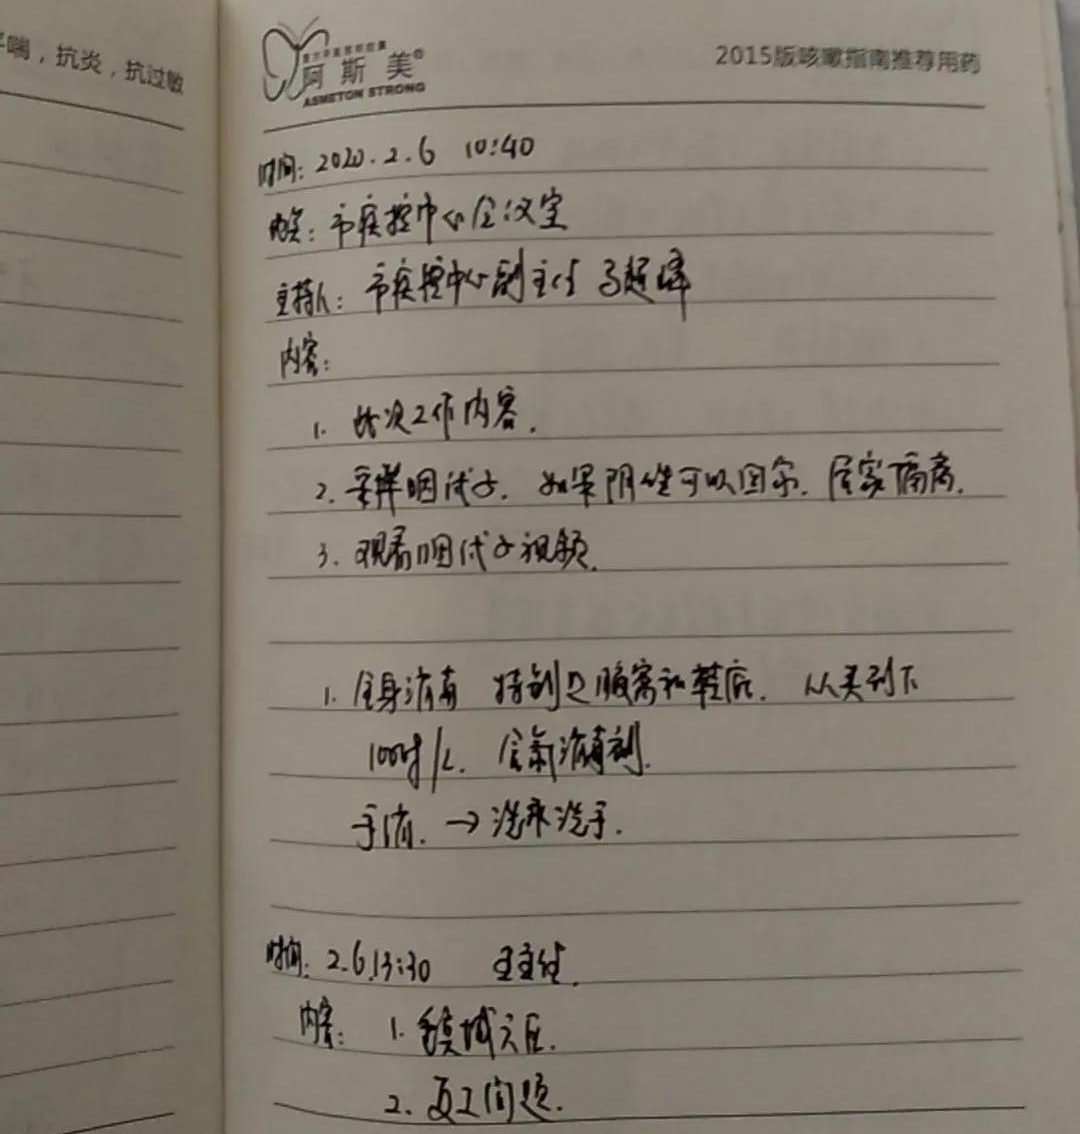 平喘，抗炎，抗过敏
阿斯美®
ASMETON STRONG
2015版咳嗽指南推荐用药
时间：2020.2.6 10:40
市疾控中心会议室
主持人：市疾控中心副主任 马超峰
内容：
1. 此次工作内容.
2. 采样咽试子. 如果阴性可以回家. 居家隔离.
3. 观看咽试子视频.
1. 全身消毒 特别是 和鞋底. 从头到下
/L. 含氯消毒剂.
手消. → 洗手.
时间：2.6.13:30 王主任.
内容：1.
2. 复工问题.